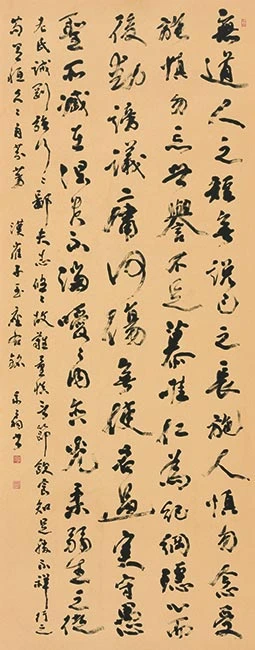 無道人之短無說己之長施人慎勿念受
施慎勿忘世譽不足慕唯仁為紀綱隱心而
後動謗議庸何傷無使名過實守愚
聖所臧在涅貴不淄曖々內含光柔弱生之徒
老氏誡剛強行々鄙夫志悠々故難量慎言節飲食知足勝不祥行之
苟有恒久々自芬芳 漢崔子玉座右銘